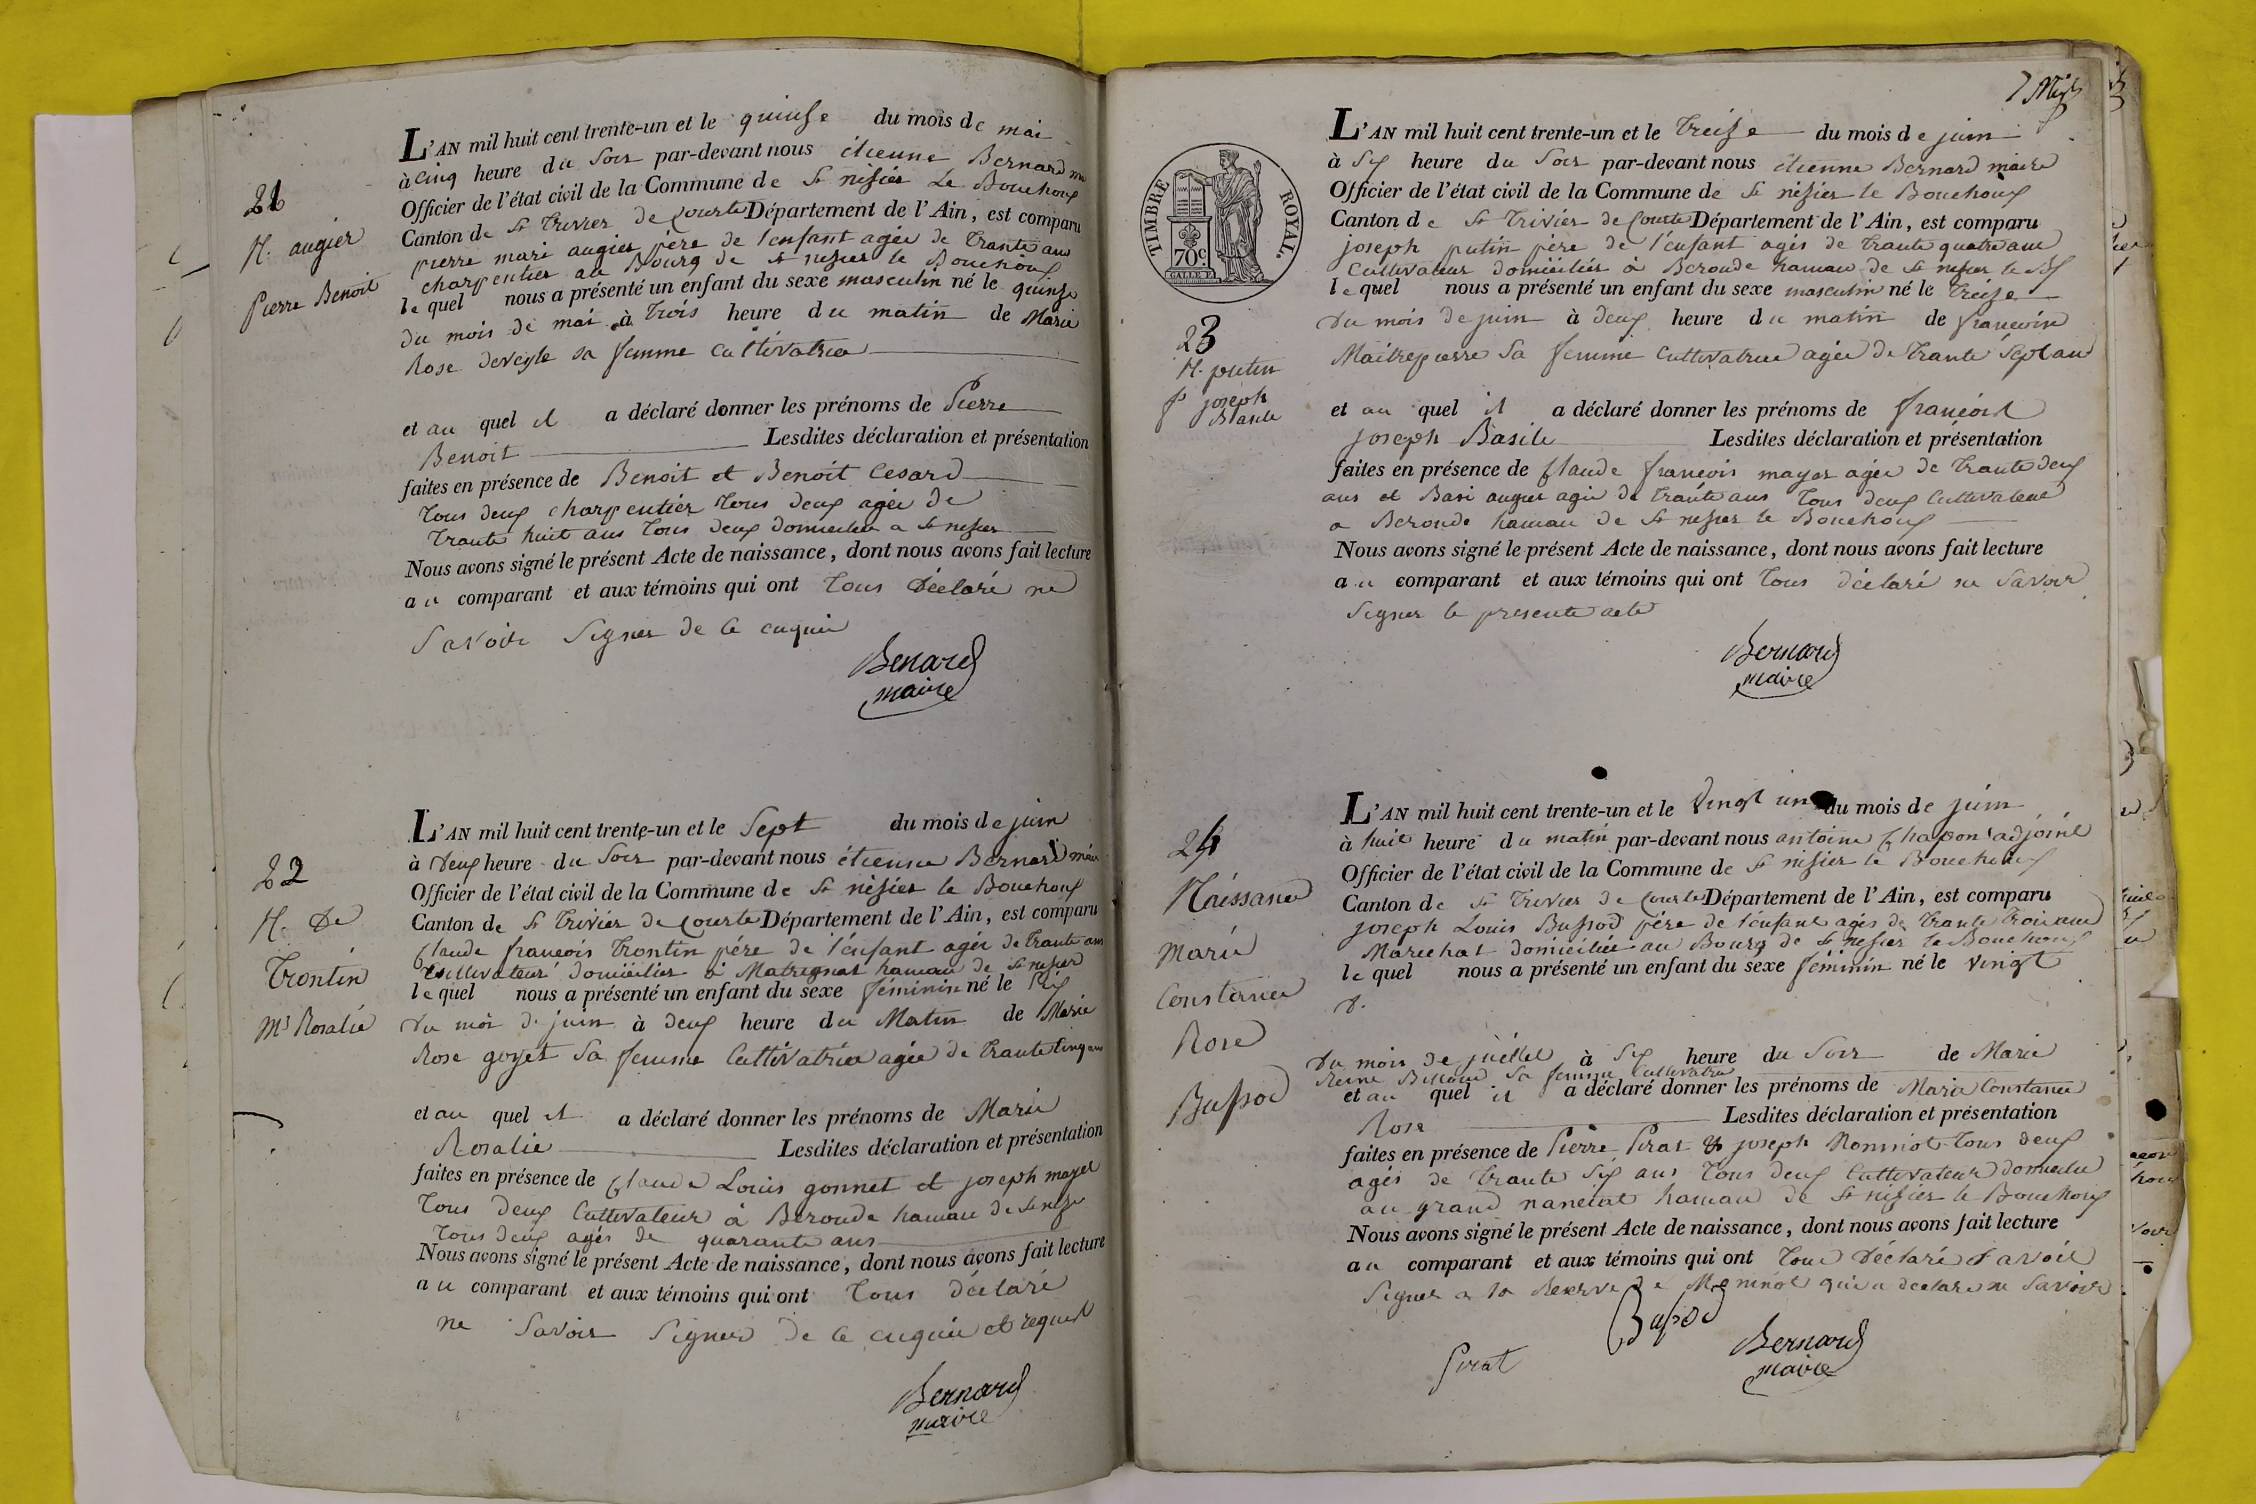 21
N. augier
Pierre Benoit
L'AN mil huit cent trente-un et le quinse du mois de mai
à cinq heure du Soir par-devant nous étienne Bernard
Officier de l'état civil de la Commune de St nisier Le Bouchoux
Canton de St Trivier de Courte Département de l'Ain, est comparu
pierre mari augier père de l'enfant agée de trante ans
charpentier au Bourg de St nisier le Bouchoux
le quel nous a présenté un enfant du sexe masculin né le quinse
du mois de mai à Trois heure du matin de Marie
Rose deveyle sa femme Cultivatrice
et au quel il a déclaré donner les prénoms de Pierre
Benoit Lesdites déclaration et présentation
faites en présence de Benoit et Benoit Cesard
Tous deux charpentier tous deux agée de
trante huit ans tous deux domicilier a St nisier
Nous avons signé le présent Acte de naissance, dont nous avons fait lecture
au comparant et aux témoins qui ont Tous Déclaré ne
Savoir Signer de ce enquis
Benard
maire
22
N. De
Trontin
Mie Rosalie
L'AN mil huit cent trente-un et le Sept du mois de juin
à Deux heure du Soir par-devant nous étienne Bernard maire
Officier de l'état civil de la Commune de St nisier le Bouchoux
Canton de St Trivier de Courte Département de l'Ain, est comparu
Claude francois Trontin père de l'enfant agée de trante ans
Cultivateur domicilier à Matregnat hamau de St nisier
le quel nous a présenté un enfant du sexe féminin né le Six
du moi de juin à deux heure du Matin de Marie
Rose goyet Sa femme Cultivatrice agée de trante cinq ans
et au quel il a déclaré donner les prénoms de Marie
Rosalie Lesdites déclaration et présentation
faites en présence de Claude Louis gonnet et joseph mayet
Tous deux Cultivateur à Beronde hamau de St nisier
Tous deux agés de quarante ans
Nous avons signé le présent Acte de naissance, dont nous avons fait lecture
au comparant et aux témoins qui ont Tous déclaré
ne Savoir Signer de ce enquis et requis
Bernard
maire
TIMBRE ROYAL.
70c
23
N. putin
fs joseph
Basile
L'AN mil huit cent trente-un et le Treize du mois de juin
à Six heure du Soir par-devant nous étienne Bernard maire
Officier de l'état civil de la Commune de St nisier le Bouchoux
Canton de St Trivier de Courte Département de l'Ain, est comparu
joseph putin père de l'enfant agés de trante quatre ans
Cultivateur domicilier à Beronde hamau de St nisier le Bx
le quel nous a présenté un enfant du sexe masculin né le Treize
du mois de juin à deux heure du matin de francoise
Maitrepierre Sa femme Cultivatrice agée de trante Sept ans
et au quel il a déclaré donner les prénoms de francois
joseph Basile Lesdites déclaration et présentation
faites en présence de Claude francois mayer agée de trante deux
ans et Basi augier agée de trante ans Tous deux Cultivateur
a Beronde hamau de St nisier le Bouchoux
Nous avons signé le présent Acte de naissance, dont nous avons fait lecture
au comparant et aux témoins qui ont Tous déclaré ne Savoir
Signer le presente acte
Bernard
maire
24
Naissance
Marie
Constance
Rose
Bussod
L'AN mil huit cent trente-un et le Vingt un du mois de juin
à huit heure du matin par-devant nous antoine Chapon adjoint
Officier de l'état civil de la Commune de St nisier le Bouchoux
Canton de St Trivier de Courte Département de l'Ain, est comparu
joseph Louis Bussod père de l'enfant agés de trante Trois ans
Marechat domiciliée au Bourg de St nisier le Bouchoux
le quel nous a présenté un enfant du sexe féminin né le vingt
d.
Du mois de juillet à Six heure du Soir de Marie
Reine Sa femme Cultivatrice
et au quel il a déclaré donner les prénoms de Marie Constance
Rose Lesdites déclaration et présentation
faites en présence de Pierre Pirat & joseph Monniot Tous deux
agés de trante Six ans Tous deux Cultivateur domicilie
au grand nanciat hamau de St nisier le Bouchoux
Nous avons signé le présent Acte de naissance, dont nous avons fait lecture
au comparant et aux témoins qui ont Tous Déclaré Savoir
Signer a la Reserve de Moninot qui a declare ne Savoir
Bussod
Pirat
Bernard
maire